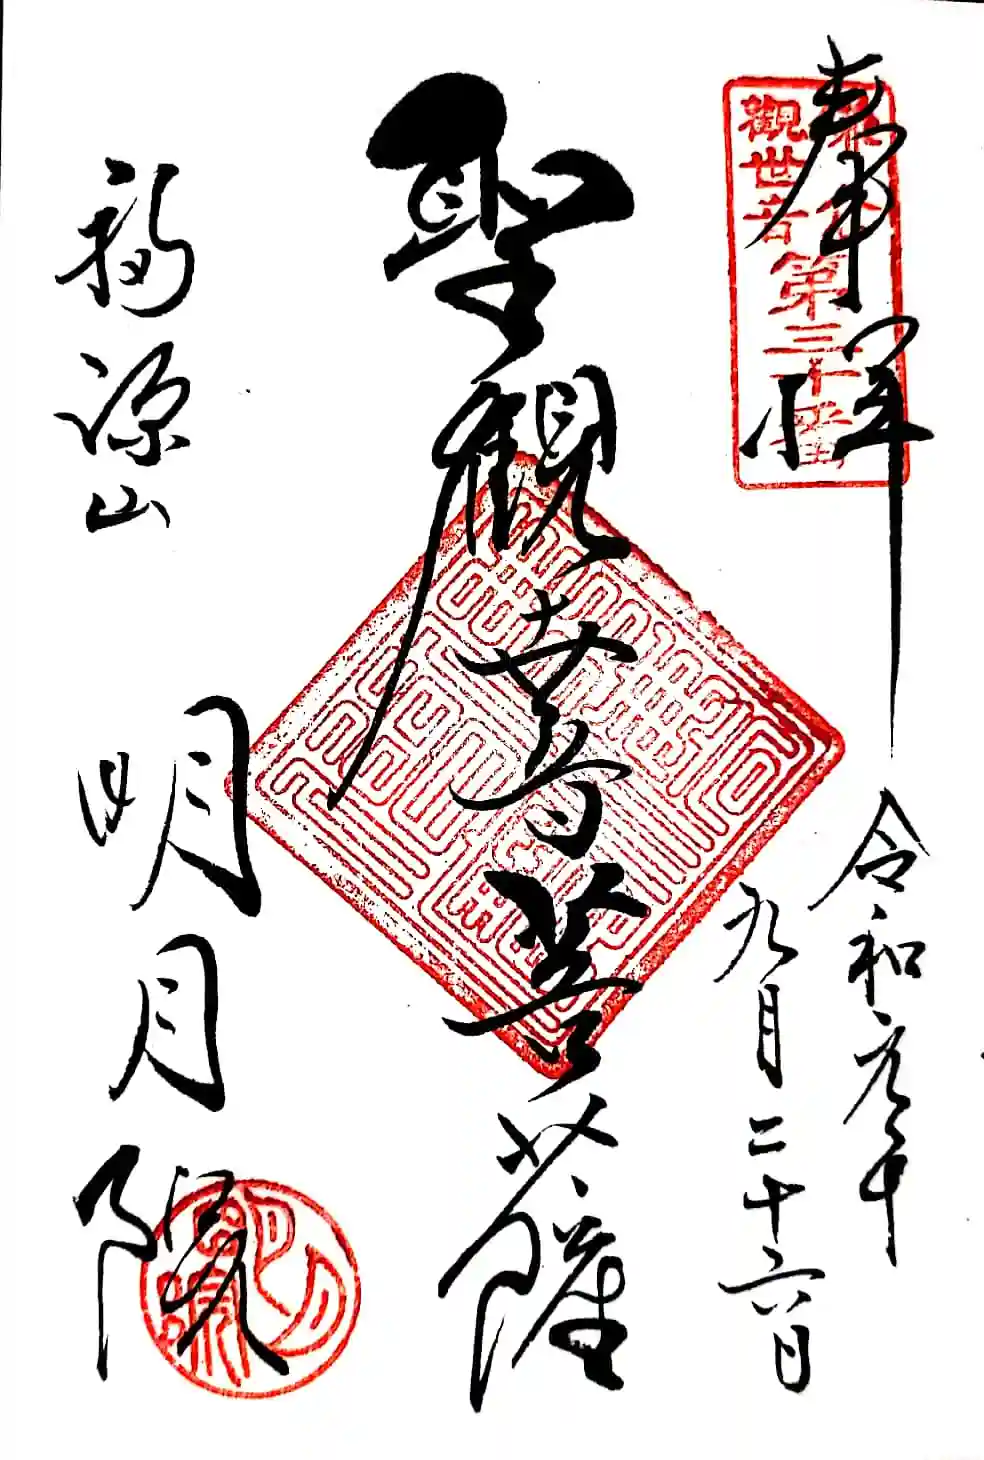 奉拝
觀世音
第三十番
令和元年
九月二十六日
聖観世音菩薩
福源山
明月院